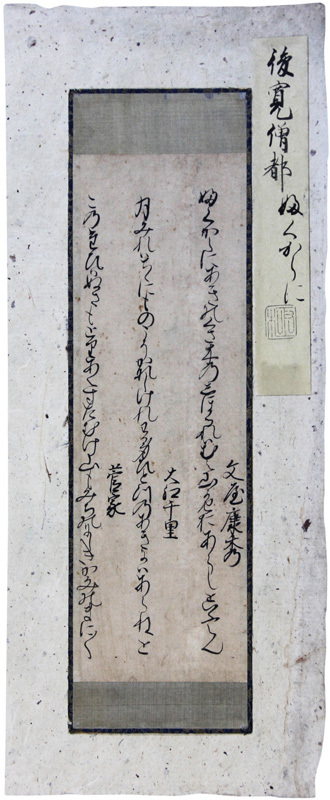 俊寛僧都 ふくからに
文屋康秀
ふくからにあきのくさきのしほるれはむへ山かせをあらしといふらん
大江千里
月みれはちゝにものこそかなしけれわか身ひとつのあきにはあらねと
菅家
このたひはぬさもとりあへすたむけ山もみちのにしきかみのまに〱